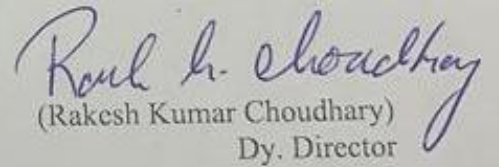 Rakesh Kr. Choudhary
(Rakesh Kumar Choudhary)
Dy. Director